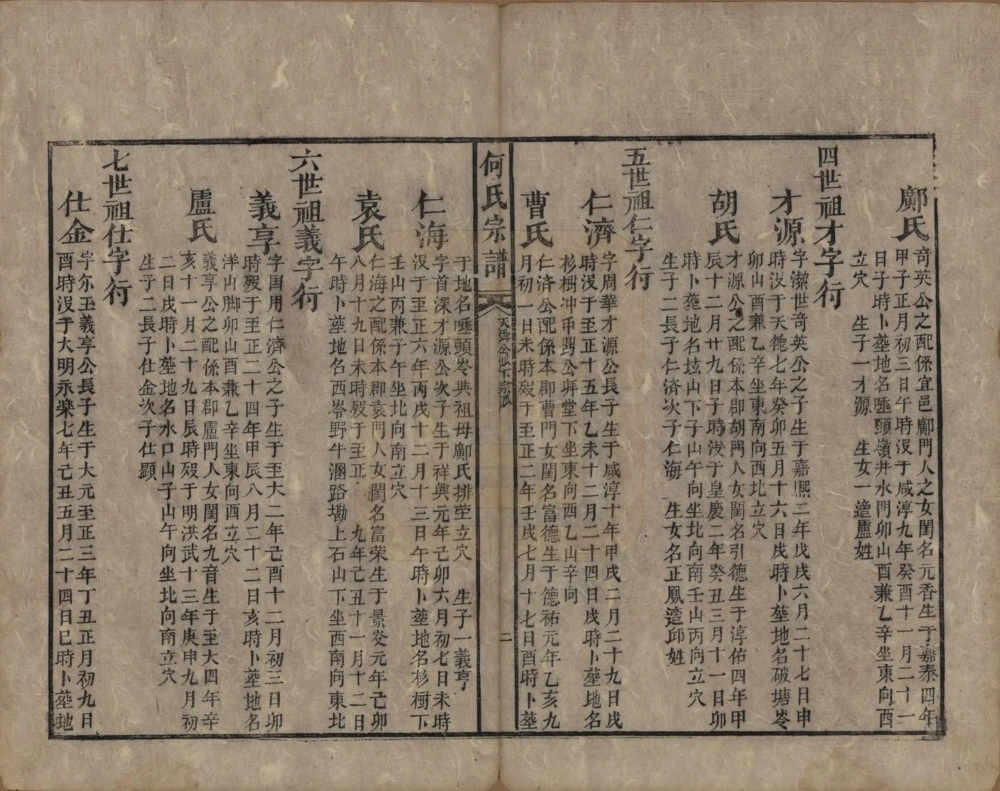 鄺氏
奇英公之配係宜邑鄺門人之女閨名元香生于嘉泰四年
甲子正月初三日午時沒于咸淳九年癸酉十一月二十一
日子時卜塟地名匯頭嶺井水門卯山酉兼乙辛坐東向酉
立穴　生子一才源　生女一適盧姓
四世祖才字行
才源
字潔世奇英公之子生于嘉熙二年戊戌六月二十七日申
時沒于天德七年癸卯五月十六日戌時卜塟地名破塘岺
卯山酉兼乙辛坐東南向西北立穴
胡氏
才源公之配係本郡胡門人女閨名引德生于淳佑四年甲
辰十二月廿九日子時沒于皇慶二年癸丑三月十一日卯
時卜塟地名垓山下子山午向坐北向南壬山丙向立穴
生子二長子仁濟次子仁海　生女名正鳳適邱姓
五世祖仁字行
仁濟
字周華才源公長子生于咸淳十年甲戌二月二十九日戌
時沒于至正十五年乙未十二月二十四日戌時卜塟地名
杉樹冲甲公塟堂下坐東向酉乙山辛向
曹氏
仁濟公配係本郡曹門女閨名富德生于德祐元年乙亥九
月初一日未時歿于至正二年壬戌七月十七日酉時卜塟
何氏宗譜
二
于地名匯頭岺與祖母鄺氏排塟立穴　生子一義亨
仁海
字首深才源公次子生于祥興元年己卯六月初七日未時
沒于至正六年丙戌十二月十三日午時卜塟地名杉樹下
壬山丙兼子午坐北向南立穴
袁氏
仁海之配係本郡袁門人女閨名富荣生于景炎元年己卯
八月十九日未時歿于至正　九年己丑十一月十二日
午時卜塟地名西岺野牛溷路墈上石山下坐西南向東北
六世祖義字行
義享
字国用仁濟公之子生于至大二年己酉十二月初三日卯
時歿于至正二十四年甲辰八月二十二日亥時卜塟地名
洋山脚卯山酉兼乙辛坐東向酉立穴
盧氏
義享公之配係本郡盧門人女閨名九音生于至大四年辛
亥十一月二十九日辰時歿于明洪武十三年庚申九月初
二日戌時卜塟地名水口山子山午向坐北向南立穴
生子二長子仕金次子仕顕
七世祖仕字行
仕金
字尔玉義享公長子生于大元至正三年丁丑正月初九日
酉時沒于大明永楽七年己丑五月二十四日巳時卜塟地